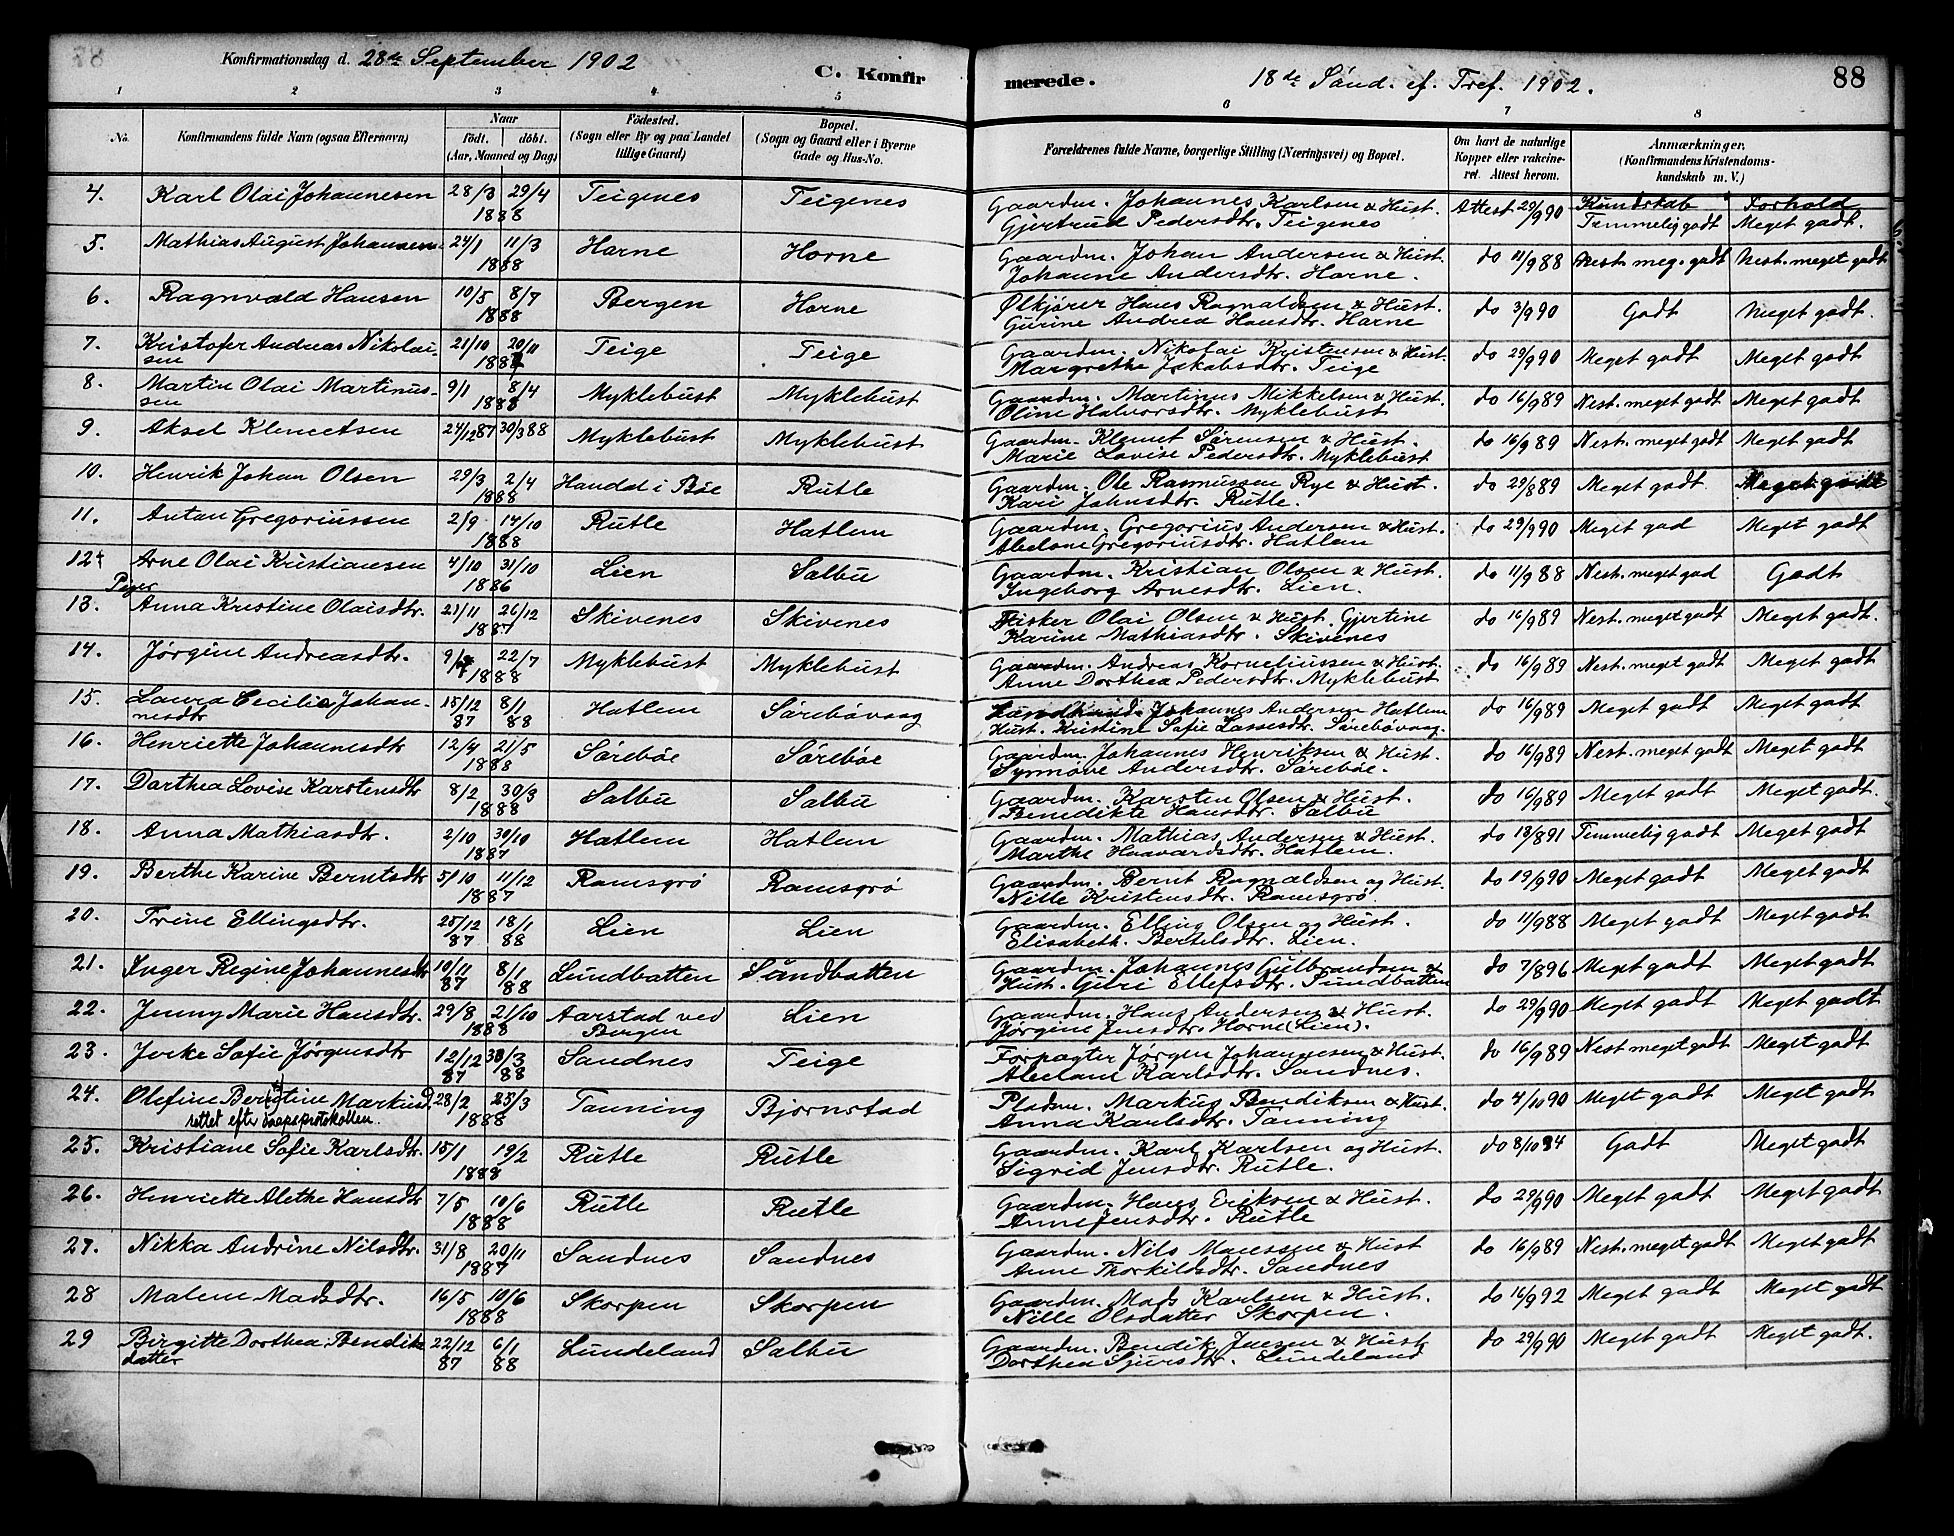 Konfirmationsdag d. 28de September 1902
C. Konfirmerede.
18de Sönd. ef. Tref. 1902.
88
1 2 3 4 5 6 7 8
No.
Konfirmandens fulde Navn (ogsaa Efternavn)
Naar
födt. döbt.
(Aar, Maaned og Dag)
Födested.
(Sogn eller By og paa Landet
tillige Gaard)
Bopæl.
(Sogn og Gaard eller i Byerne
Gade og Hus-No.
Forældrenes fulde Navne, borgerlige Stilling (Næringsvei) og Bopæl.
Om havt de naturlige
Kopper eller vakcine-
ret. Attest herom.
Anmærkninger.
(Konfirmandens Kristendoms-
kundskab m. V.)
Kundskab Forhold
4. Karl Olai Johannesen 28/3 29/4 Teigenes Teigenes Gaardm. Johannes Karlsen & Hust. Attest 29/9 90 Temmelig godt Meget godt.
1888 Gjertrud Pedersdtr. Teigenes
5. Mathias August Johansen 24/1 11/3 Horne Horne Gaardm. Johan Andersen & Hust. do 11/9 88 Nest. meg. godt Nest. meget godt
1888 Johanne Andersdtr. Horne.
6. Ragnvald Hansen 10/5 8/7 Bergen Horne Ølkjører Hans Ragnaldsen & Hust. do 3/9 90 Godt Meget godt
1888 Gurine Andrea Hansdtr. Horne
7. Kristofer Andreas Nikolai- 21/10 20/11 Teige Teige Gaardm. Nikolai Kristensen & Hust. do 29/9 90 Meget godt Meget godt
sen 1887 Margrethe Jakobsdtr. Teige
8. Martin Olai Martinus- 9/1 8/4 Myklebust Myklebust Gaardm. Martinus Mikkelsen & Hust. do 16/9 89 Nest. meget godt Meget godt
sen 1888 Oline Halvorsdtr. Myklebust
9. Aksel Klemetsen 24/12 87 30/3 88 Myklebust Myklebust Gaardm. Klemet Sørensen & Hust. do 16/9 89 Nest. meget godt Meget godt
Marie Lovise Pedersdtr. Myklebust
10. Henrik Johan Olsen 29/3 2/4 i Bøe Rutle Gaardm. Ole Rasmussen Rye & Hust. do 29/8 89 Meget godt Meget godt
1888 Kari Johnsdtr. Rutle.
11. Anton Gregoriussen 2/9 14/10 Rutle Hatlem Gaardm. Gregorius Andersen & Hust. do 29/9 90 Meget god Meget godt
1888 Abelone Gregoriusdtr. Hatlem
12. Arne Olai Kristiansen 4/10 31/10 Lien Salbu Gaardm. Kristian Olsen & Hust. do 11/9 88 Nest. meget god Godt
Piger 1886 Ingeborg Arnesdtr. Lien.
13. Anna Kristine Olaisdtr. 21/11 26/12 Skivenes Skivenes Fisker Olai Olsen & Hust. Gjertine do 16/9 89 Nest. meget godt Meget godt.
1887 Karine Mathiasdtr. Skivenes
14. Jørgine Andreasdtr. 9/4 22/7 Myklebust Myklebust Gaardm. Andreas Korneliussen & Hust. do 16/9 89 Nest. meget godt Meget godt
1888 Anne Dorthea Pedersdtr. Myklebust
15. Laura Cecilie Johan- 15/12 8/1 Hatlem Sørebøvaag Johannes Andersen Hatlem do 16/9 89 Meget godt Meget godt
nesdtr 87 88 Hust. Kristine Sofie Lassesdtr. Sørebøvaag.
16. Henriette Johannesdtr 12/4 21/5 Sørebøe Sørebøe Gaardm. Johannes Henriksen & Hust. do 16/9 89 Nest. meget godt Meget godt
1888 Synnøve Andersdtr. Sørebøe.
17. Dorthea Lovise Karstensdtr 8/2 30/3 Salbu Salbu Gaardm. Karsten Olsen & Hust. do 16/9 89 Meget godt Meget godt.
1888 Benedikte Hansdtr. Salbu
18. Anna Mathiasdtr. 2/10 30/10 Hatlem Hatlem Gaardm. Mathias Andersen & Hust. do 18/8 91 Temmelig godt Meget godt
1887 Marthe Haavardsdtr. Hatlem.
19. Berthe Karine Berntsdtr 5/10 11/12 Ramsgrø Ramsgrø Gaardm. Bernt Ragnaldsen og Hust. do 19/9 90 Meget godt Meget godt
1887 Nille Kristensdtr. Ramsgrø.
20. Trine Ellingsdtr. 25/12 18/1 Lien Lien Gaardm. Elling Olsen og Hust. do 11/9 88 Meget godt Meget godt
87 88 Elisabeth. Bertelsdtr. Lien.
21. Inger Regine Johannesdtr 10/11 8/1 Lundbotten Sundbotten Gaardm. Johannes Gulbrandsen & do 7/8 96 Meget godt Meget godt
87 88 Hust. Guri Ellefsdtr. Sundbotten
22. Jenny Marie Hansdtr. 29/8 21/10 Aarstad ved Lien Gaardm. Hans Andersen & Hust. do 29/9 90 Meget godt Meget godt
1888 Bergen Jørgine Jensdtr. Horne (Lien).
23. Jocke Sofie Jørgensdtr 12/12 30/3 Sandnes Teige Forpagter Jørgen Johannesen & Hust. do 16/9 89 Nest meget godt Meget godt
87 88 Abelone Karlsdtr. Sandnes.
24. Olefine Berntine Markusd. 28/2 25/3 Tanning Bjørnstad Pladsm. Markus Bendiksen & Hust. do 4/10 90 Meget godt Meget godt
rettet efter daapsprotokollen. 1888 Anna Karlsdtr. Tanning
25. Kristiane Sofie Karlsdtr. 15/1 19/2 Rutle Rutle Gaardm. Karl Karlsen og Hust. do 8/10 94 Godt Meget godt
1888 Sigrid Jensdtr. Rutle.
26. Henriette Alethe Hansdtr 7/5 10/6 Rutle Rutle Gaardm. Hans Eriksen & Hust. do 29/9 90 Meget godt Meget godt
1888 Anne Jensdtr. Rutle
27. Nikka Andrine Nilsdtr. 31/8 20/11 Sandnes Sandnes Gaardm. Nils Monssen & Hust do 16/9 89 Nest. meget godt Meget godt
1887 Anne Thorkildsdtr. Sandnes
28 Malene Madsdtr. 16/5 10/6 Skorpen Skorpen Gaardm. Mads Karlsen & Hust. do 16/9 92 Meget godt Meget godt
1888 Nille Olsdatter Skorpen.
29 Birgitte Dorthea Bendiks 22/12 6/1 Lundeland Salbu Gaardm. Bendik Jensen & Hust do 29/9 90 Meget godt Meget godt.
datter 87 88 Dorthea Sjursdtr. Lundeland